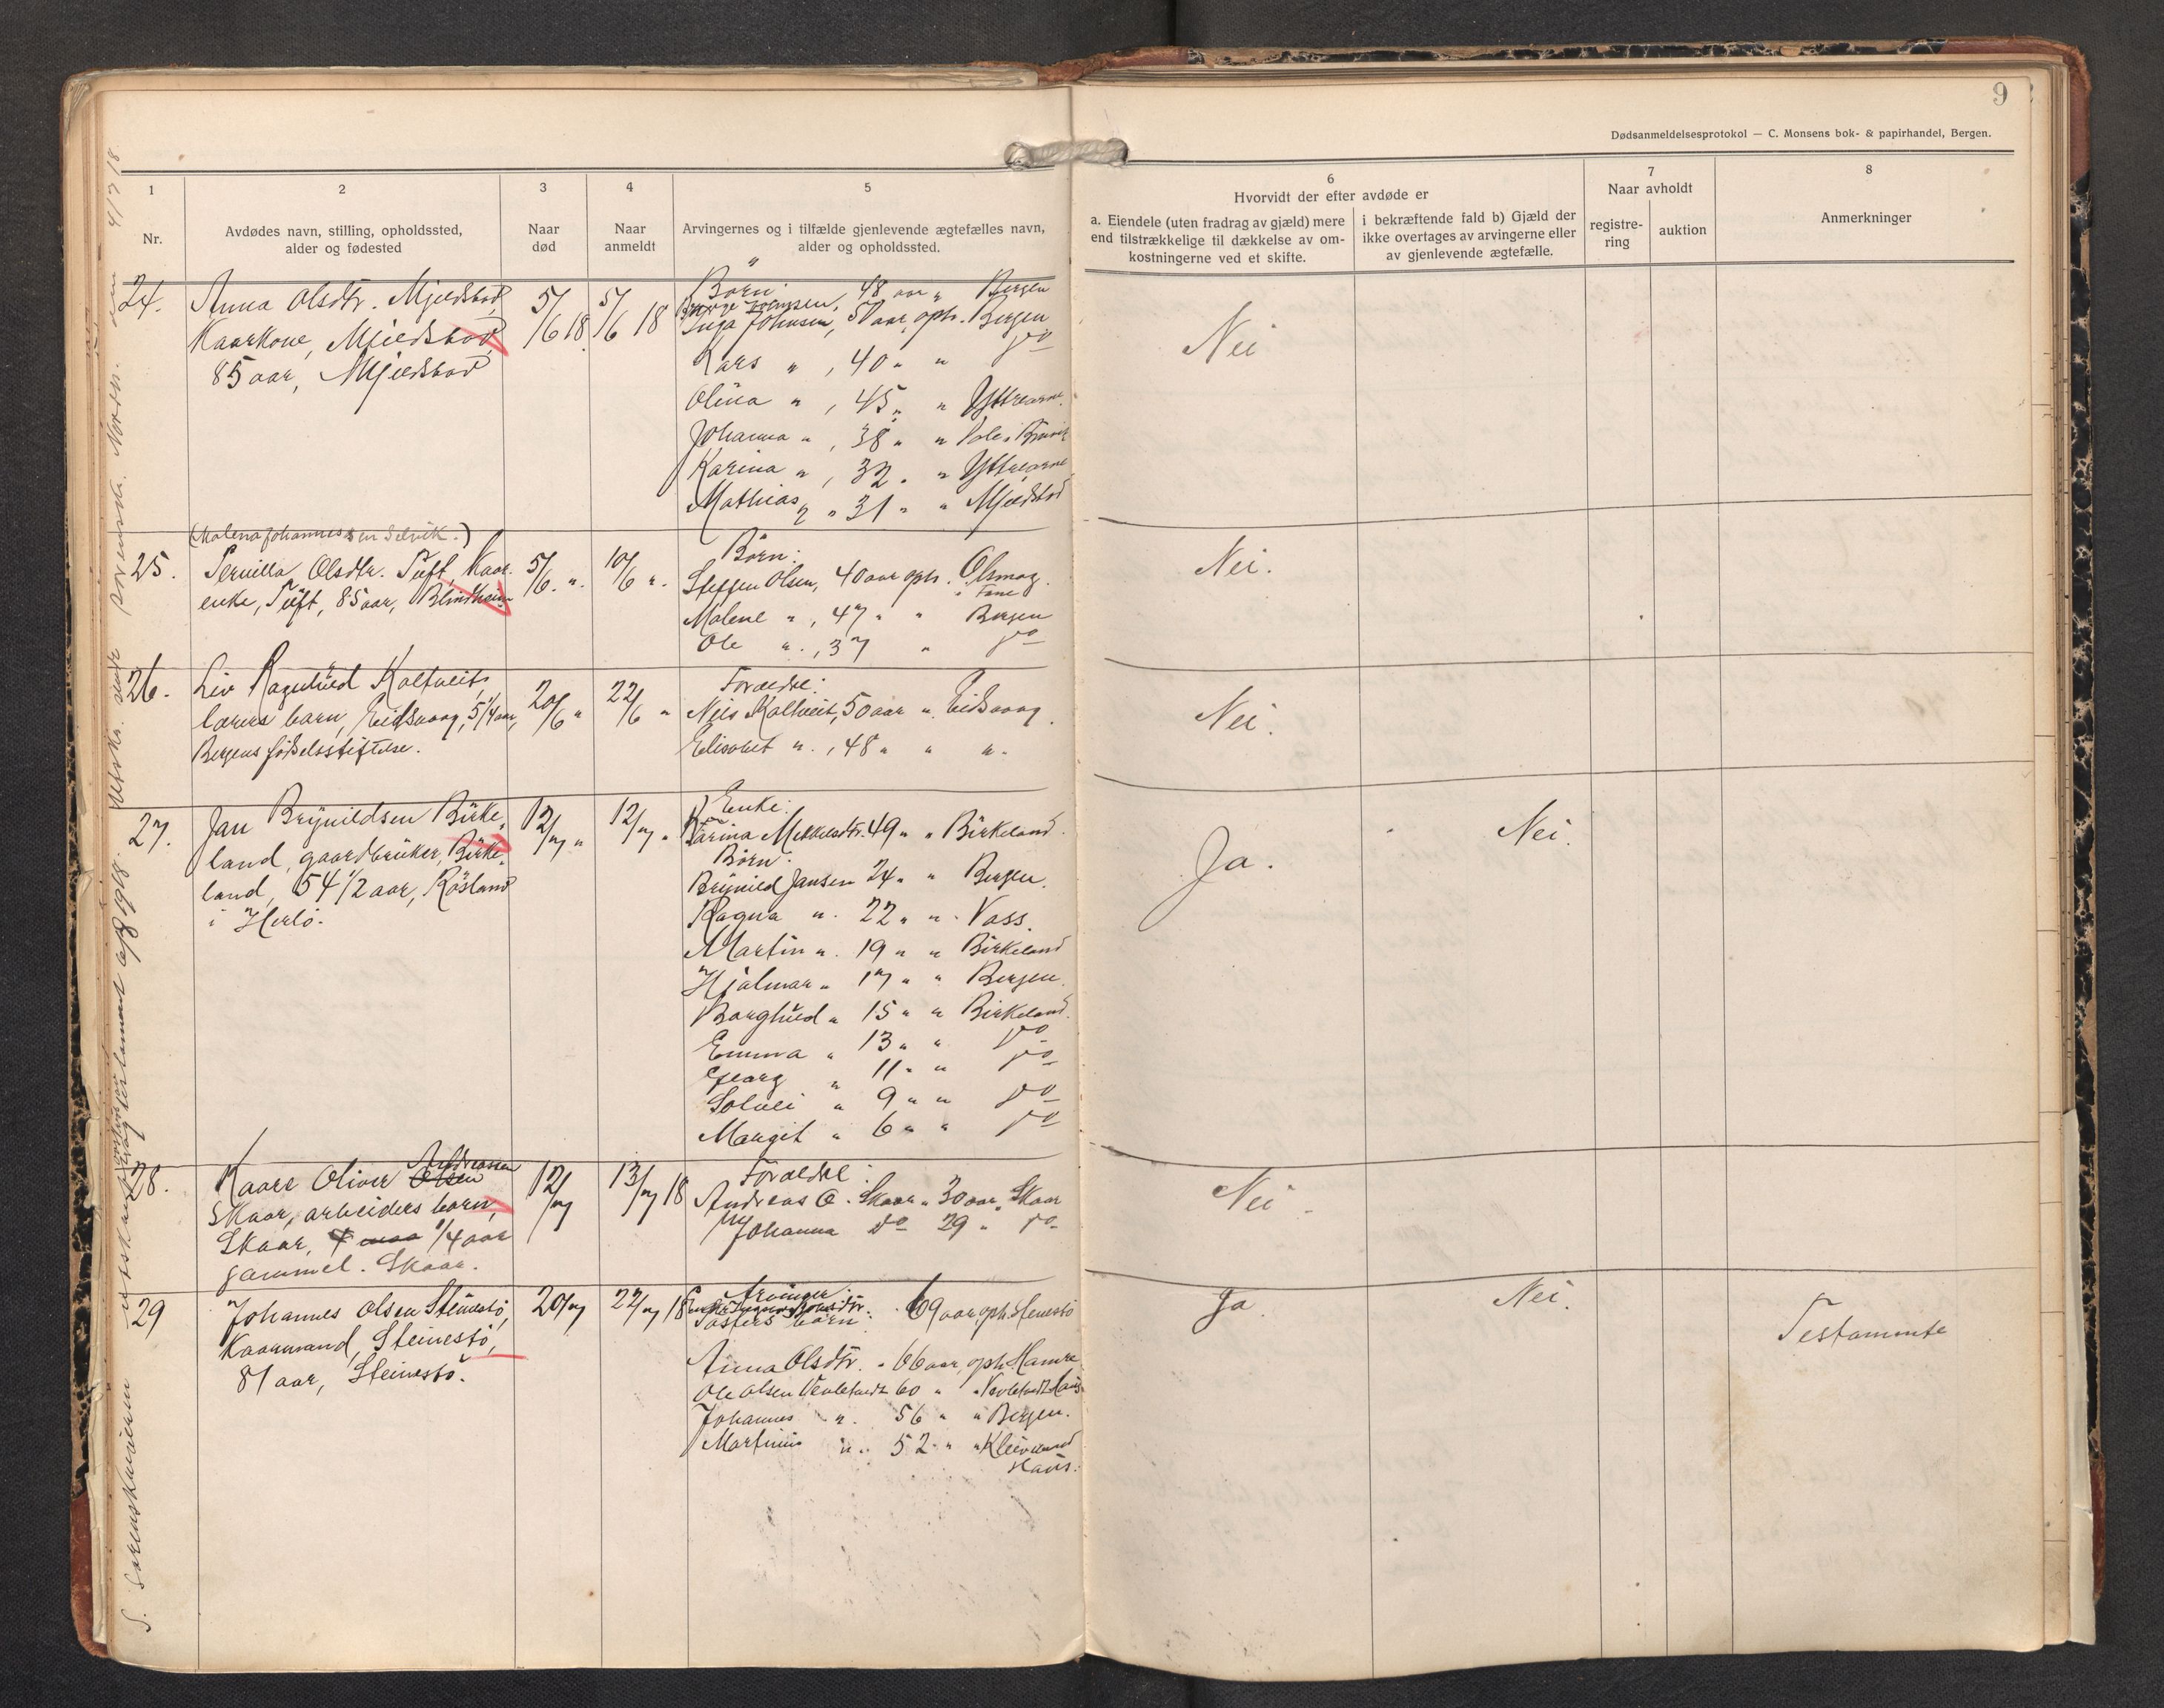 9
Dødsanmeldelsesprotokol — C. Monsens bok- & papirhandel, Bergen.
1
Nr.
2
Avdødes navn, stilling, opholdssted,
alder og fødested
3
Naar
død
4
Naar
anmeldt
5
Arvingernes og i tilfælde gjenlevende ægtefælles navn,
alder og opholdssted.
6
Hvorvidt der efter avdøde er
a. Eiendele (uten fradrag av gjæld) mere
end tilstrækkelige til dækkelse av om-
kostningerne ved et skifte.
i bekræftende fald b) Gjæld der
ikke overtages av arvingerne eller
av gjenlevende ægtefælle.
7
Naar avholdt
registre-
ring
auktion
8
Anmerkninger
24.
Anna Olsdtr. Mjeldstad,
Kaarkone, Mjeldstad,
85 aar, Mjeldstad
5/6 18
5/6 18
Børn:
Johnsen, 48 aar " Bergen
Inga Johnsen, 50 aar, oph. Bergen
Lars " , 40 " " do
Olina " , 45 " " Yttrearne.
Johanna " , 38 " "
Karina " , 32 " " Yttrearne
Mathias " " 31 " " Mjeldstad
Nei
25.
(Malena Johannessen Selvik.)
Pernilla Olsdtr. Tuft, Kaar-
enke, Tuft, 85 aar, Blindheim
5/6 "
10/6 "
Børn:
Steffen Olsen, 40 aar oph.
i Fane
Malene " , 47 " " Bergen
Ole " , 37 " do
Nei.
26.
Liv Ragnhild Kaltveit,
lærers barn, Eidsvaag, 5 1/4 aar,
Bergens fødselsstiftelse.
20/6 "
22/6 "
Forældre:
Nils Kaltveit, 50 aar " Eidsvaag.
Elisabet " , 48 " " "
Nei.
27.
Jan Brynildsen Birke-
land, gaardbruker, Birke-
land, 54 1/2 aar, Røsland
i Herlø.
12/7 "
12/7 "
Enke:
Karina Mikkelsdtr. 49 " " Birkeland.
Børn:
Brynild Jansen 24 " " Bergen.
Ragna " 22 " " Voss.
Martin " 19 " " Birkeland
Hjalmar " 17 " " Bergen.
Borghild " 15 " " Birkeland.
Emma " 13 " " do
Georg " 11 " " do
Solvei " 9 " " do
Margit " 6 " " do
Ja.
Nei.
28.
Andreassen
Kaare Oliver Olsen
Skaar, arbeiders barn,
Skaar, 1/4 aar
gammel. Skaar.
12/7
13/7 18
Forældre:
Andreas O. Skaar " 30 aar " Skaar
Johanna do 29 " do
Nei
29
Johannes Olsen Steinestø,
Kaarmand, Steinestø,
81 aar, Steinestø.
20/7
22/7 18
Arvinger:
69 aar, oph. Steinestø
Søsters børn:
Anna Olsdtr. " 66 aar, oph. Hamre
Ole Olsen 60 " "
Johannes " 56 " " Bergen.
Martinus " 52 " "
Haus.
Ja
Nei.
Testamente